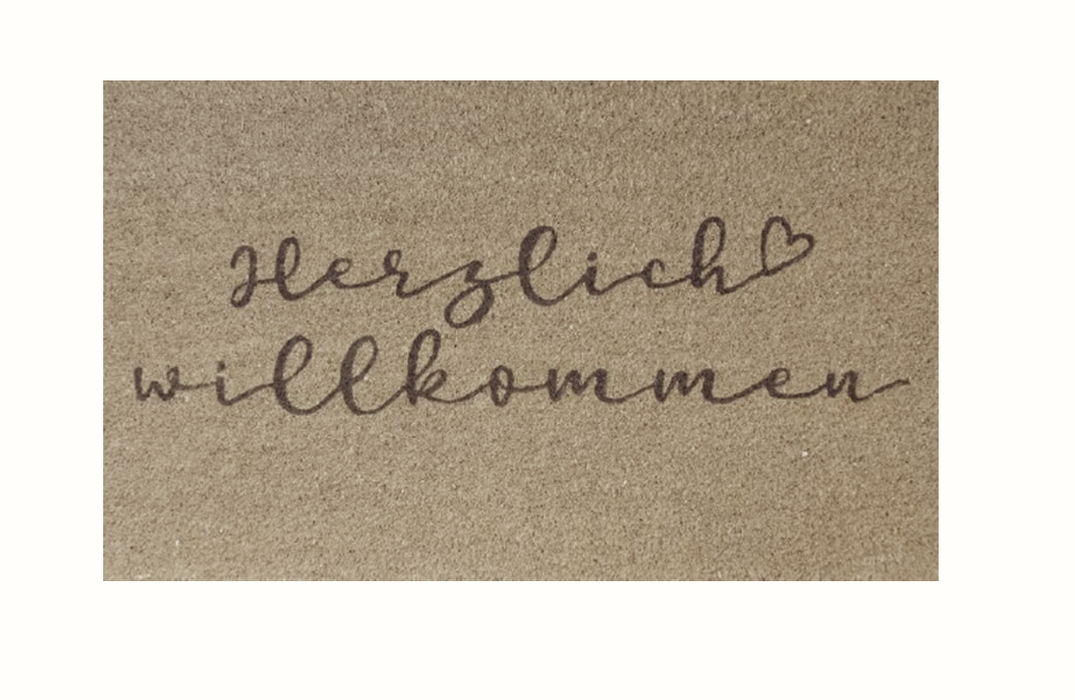 Herzlich♡
willkommen